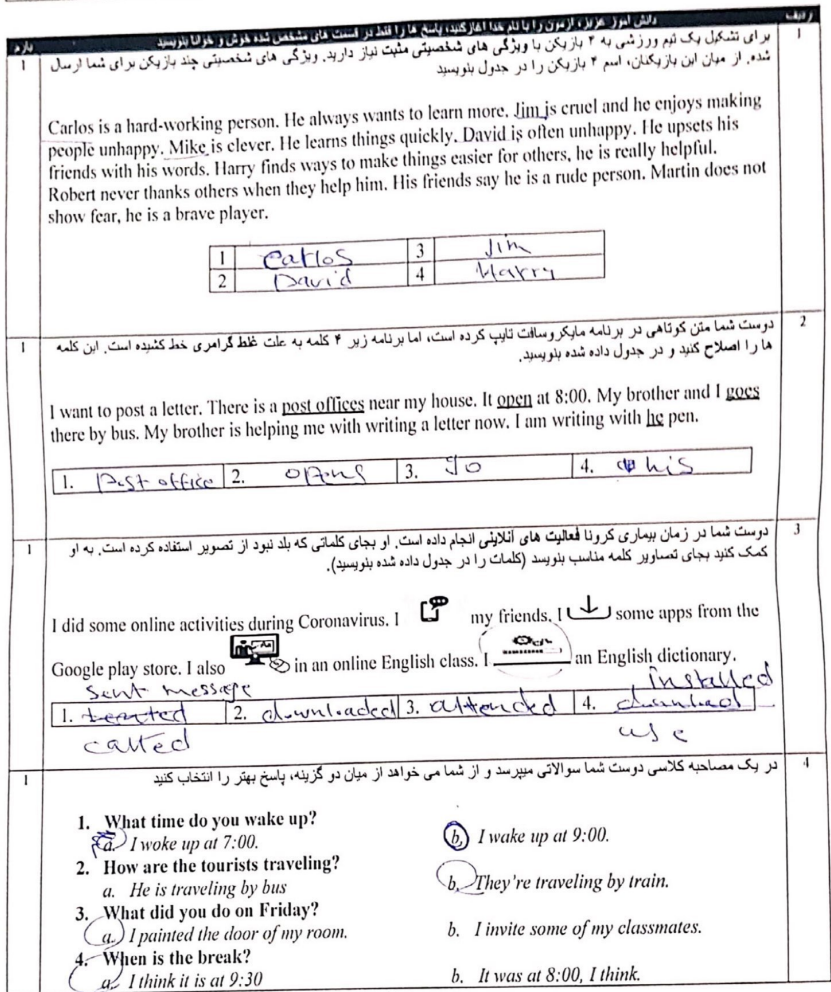 ردیف دانش آموز عزیز، آزمون را با نام خدا آغاز کنید، پاسخ ها را فقط در قسمت های مشخص شده خوش و خوانا بنویسید بارم
1 برای تشکیل یک تیم ورزشی به ۴ بازیکن با ویژگی های شخصیتی مثبت نیاز دارید. ویژگی های شخصیتی چند بازیکن برای شما ارسال 1
شده. از میان این بازیکنان، اسم ۴ بازیکن را در جدول بنویسید
Carlos is a hard-working person. He always wants to learn more. Jim is cruel and he enjoys making
people unhappy. Mike is clever. He learns things quickly. David is often unhappy. He upsets his
friends with his words. Harry finds ways to make things easier for others, he is really helpful.
Robert never thanks others when they help him. His friends say he is a rude person. Martin does not
show fear, he is a brave player.
1 Carlos 3 Jim
2 David 4 Harry
2 دوست شما متن کوتاهی در برنامه مایکروسافت تایپ کرده است، اما برنامه زیر ۴ کلمه به علت غلط گرامری خط کشیده است. این کلمه 1
ها را اصلاح کنید و در جدول داده شده بنویسید.
I want to post a letter. There is a post offices near my house. It open at 8:00. My brother and I goes
there by bus. My brother is helping me with writing a letter now. I am writing with he pen.
1. Post office 2. opens 3. go 4. his
3 دوست شما در زمان بیماری کرونا فعالیت های آنلاینی انجام داده است. او بجای کلماتی که بلد نبود از تصویر استفاده کرده است. به او 1
کمک کنید بجای تصاویر کلمه مناسب بنویسد (کلمات را در جدول داده شده بنویسید).
I did some online activities during Coronavirus. I my friends. I some apps from the
Google play store. I also in an online English class. I an English dictionary.
sent message installed
1. texted 2. downloaded 3. attended 4. download
called use
4 در یک مصاحبه کلاسی دوست شما سوالاتی میپرسد و از شما می خواهد از میان دو گزینه، پاسخ بهتر را انتخاب کنید 1
1. What time do you wake up?
a. I woke up at 7:00. b. I wake up at 9:00.
2. How are the tourists traveling?
a. He is traveling by bus b. They're traveling by train.
3. What did you do on Friday?
a. I painted the door of my room. b. I invite some of my classmates.
4. When is the break?
a. I think it is at 9:30 b. It was at 8:00, I think.